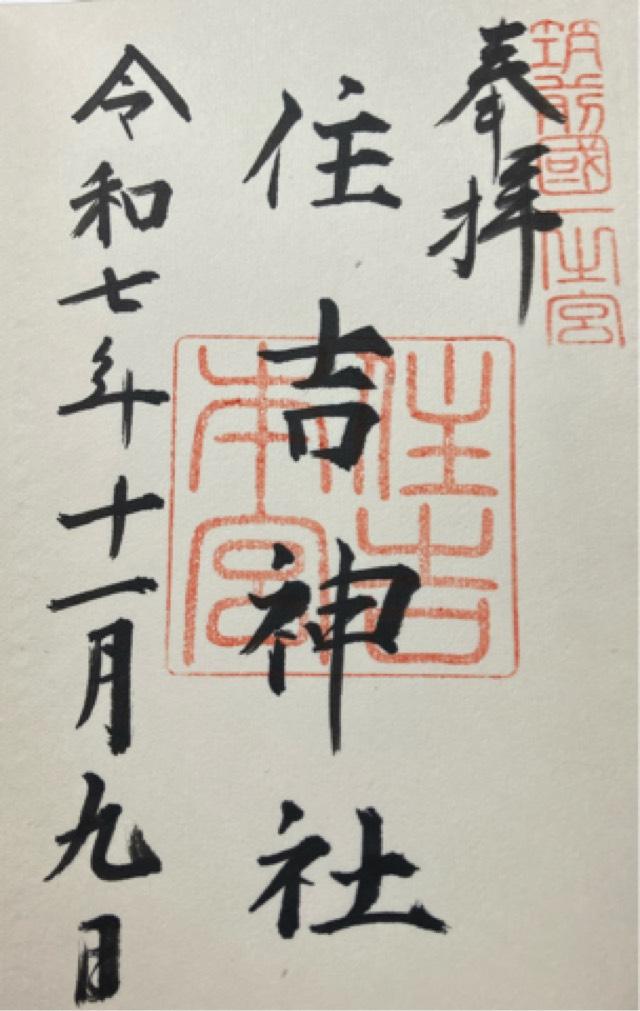 筑前國一之宮
奉拝
住吉神社
住吉本宮
令和七年十一月九日